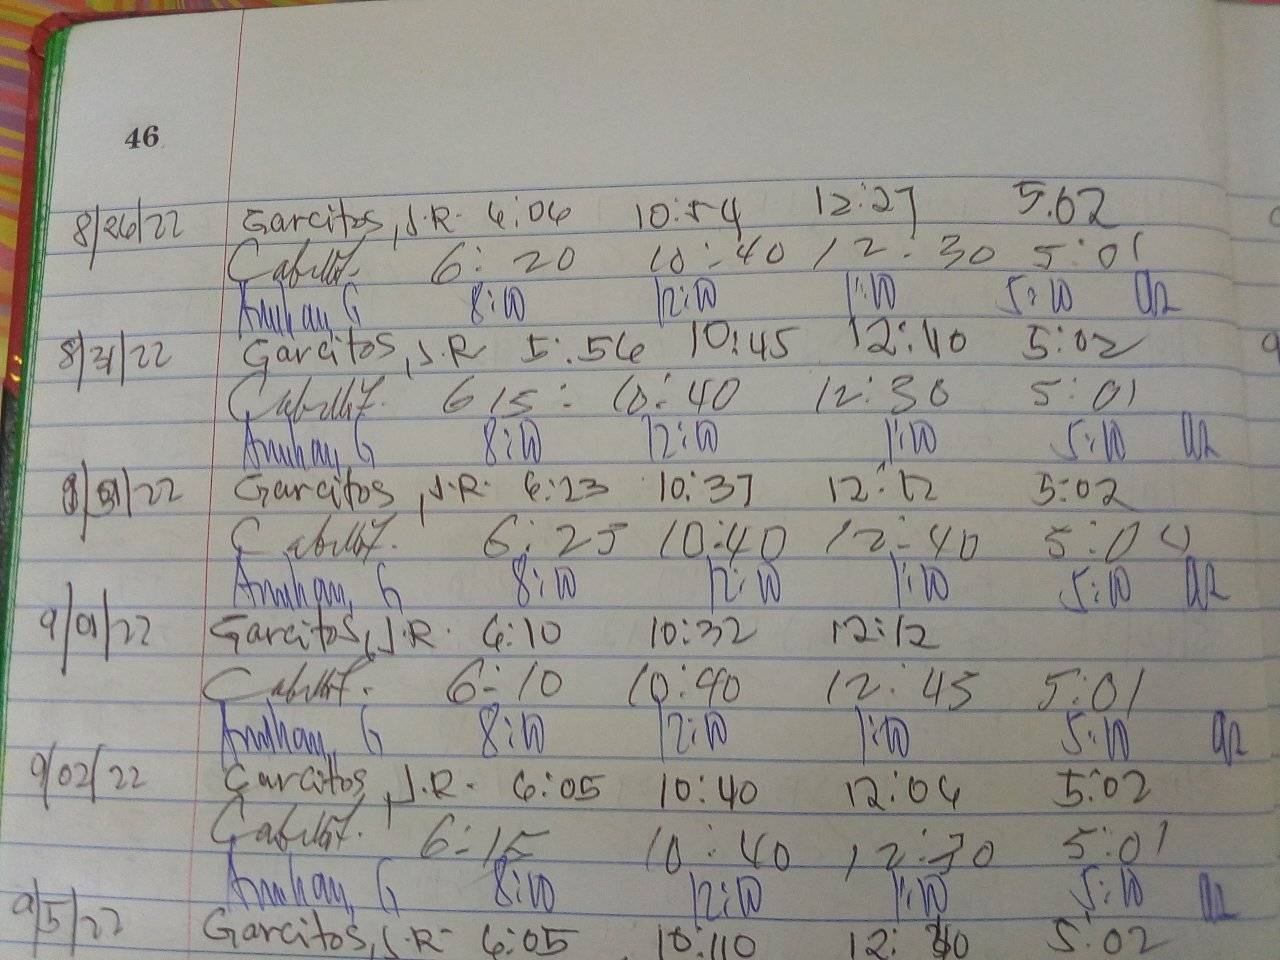 46
8/26/22 Garcitos, J.R. 6:06 10:54 12:27 5:02
6:20 10:40 12:30 5:01
Anuhan, G 8:00 12:00 1:00 5:00
8/31/22 Garcitos, J.R 5:56 10:45 12:40 5:02
6 15: 10:40 12:30 5:01
Anuhan, G 8:00 12:00 1:00 5:00
/22 Garcitos, J.R. 6:23 10:37 12:12 5:02
6:25 10:40 12:40 5:04
Anuhan, G 8:00 12:00 1:00 5:00
9/01/22 Garcitos, J.R. 6:10 10:32 12:12
6:10 10:40 12:45 5:01
Anuhan, G 8:00 12:00 1:00 5:00
9/02/22 Garcitos, J.R. 6:05 10:40 12:06 5:02
6:15 10:40 12:30 5:01
Anuhan, G 8:00 12:00 1:00 5:00
9/5/22 Garcitos, J.R. 6:05 5:02